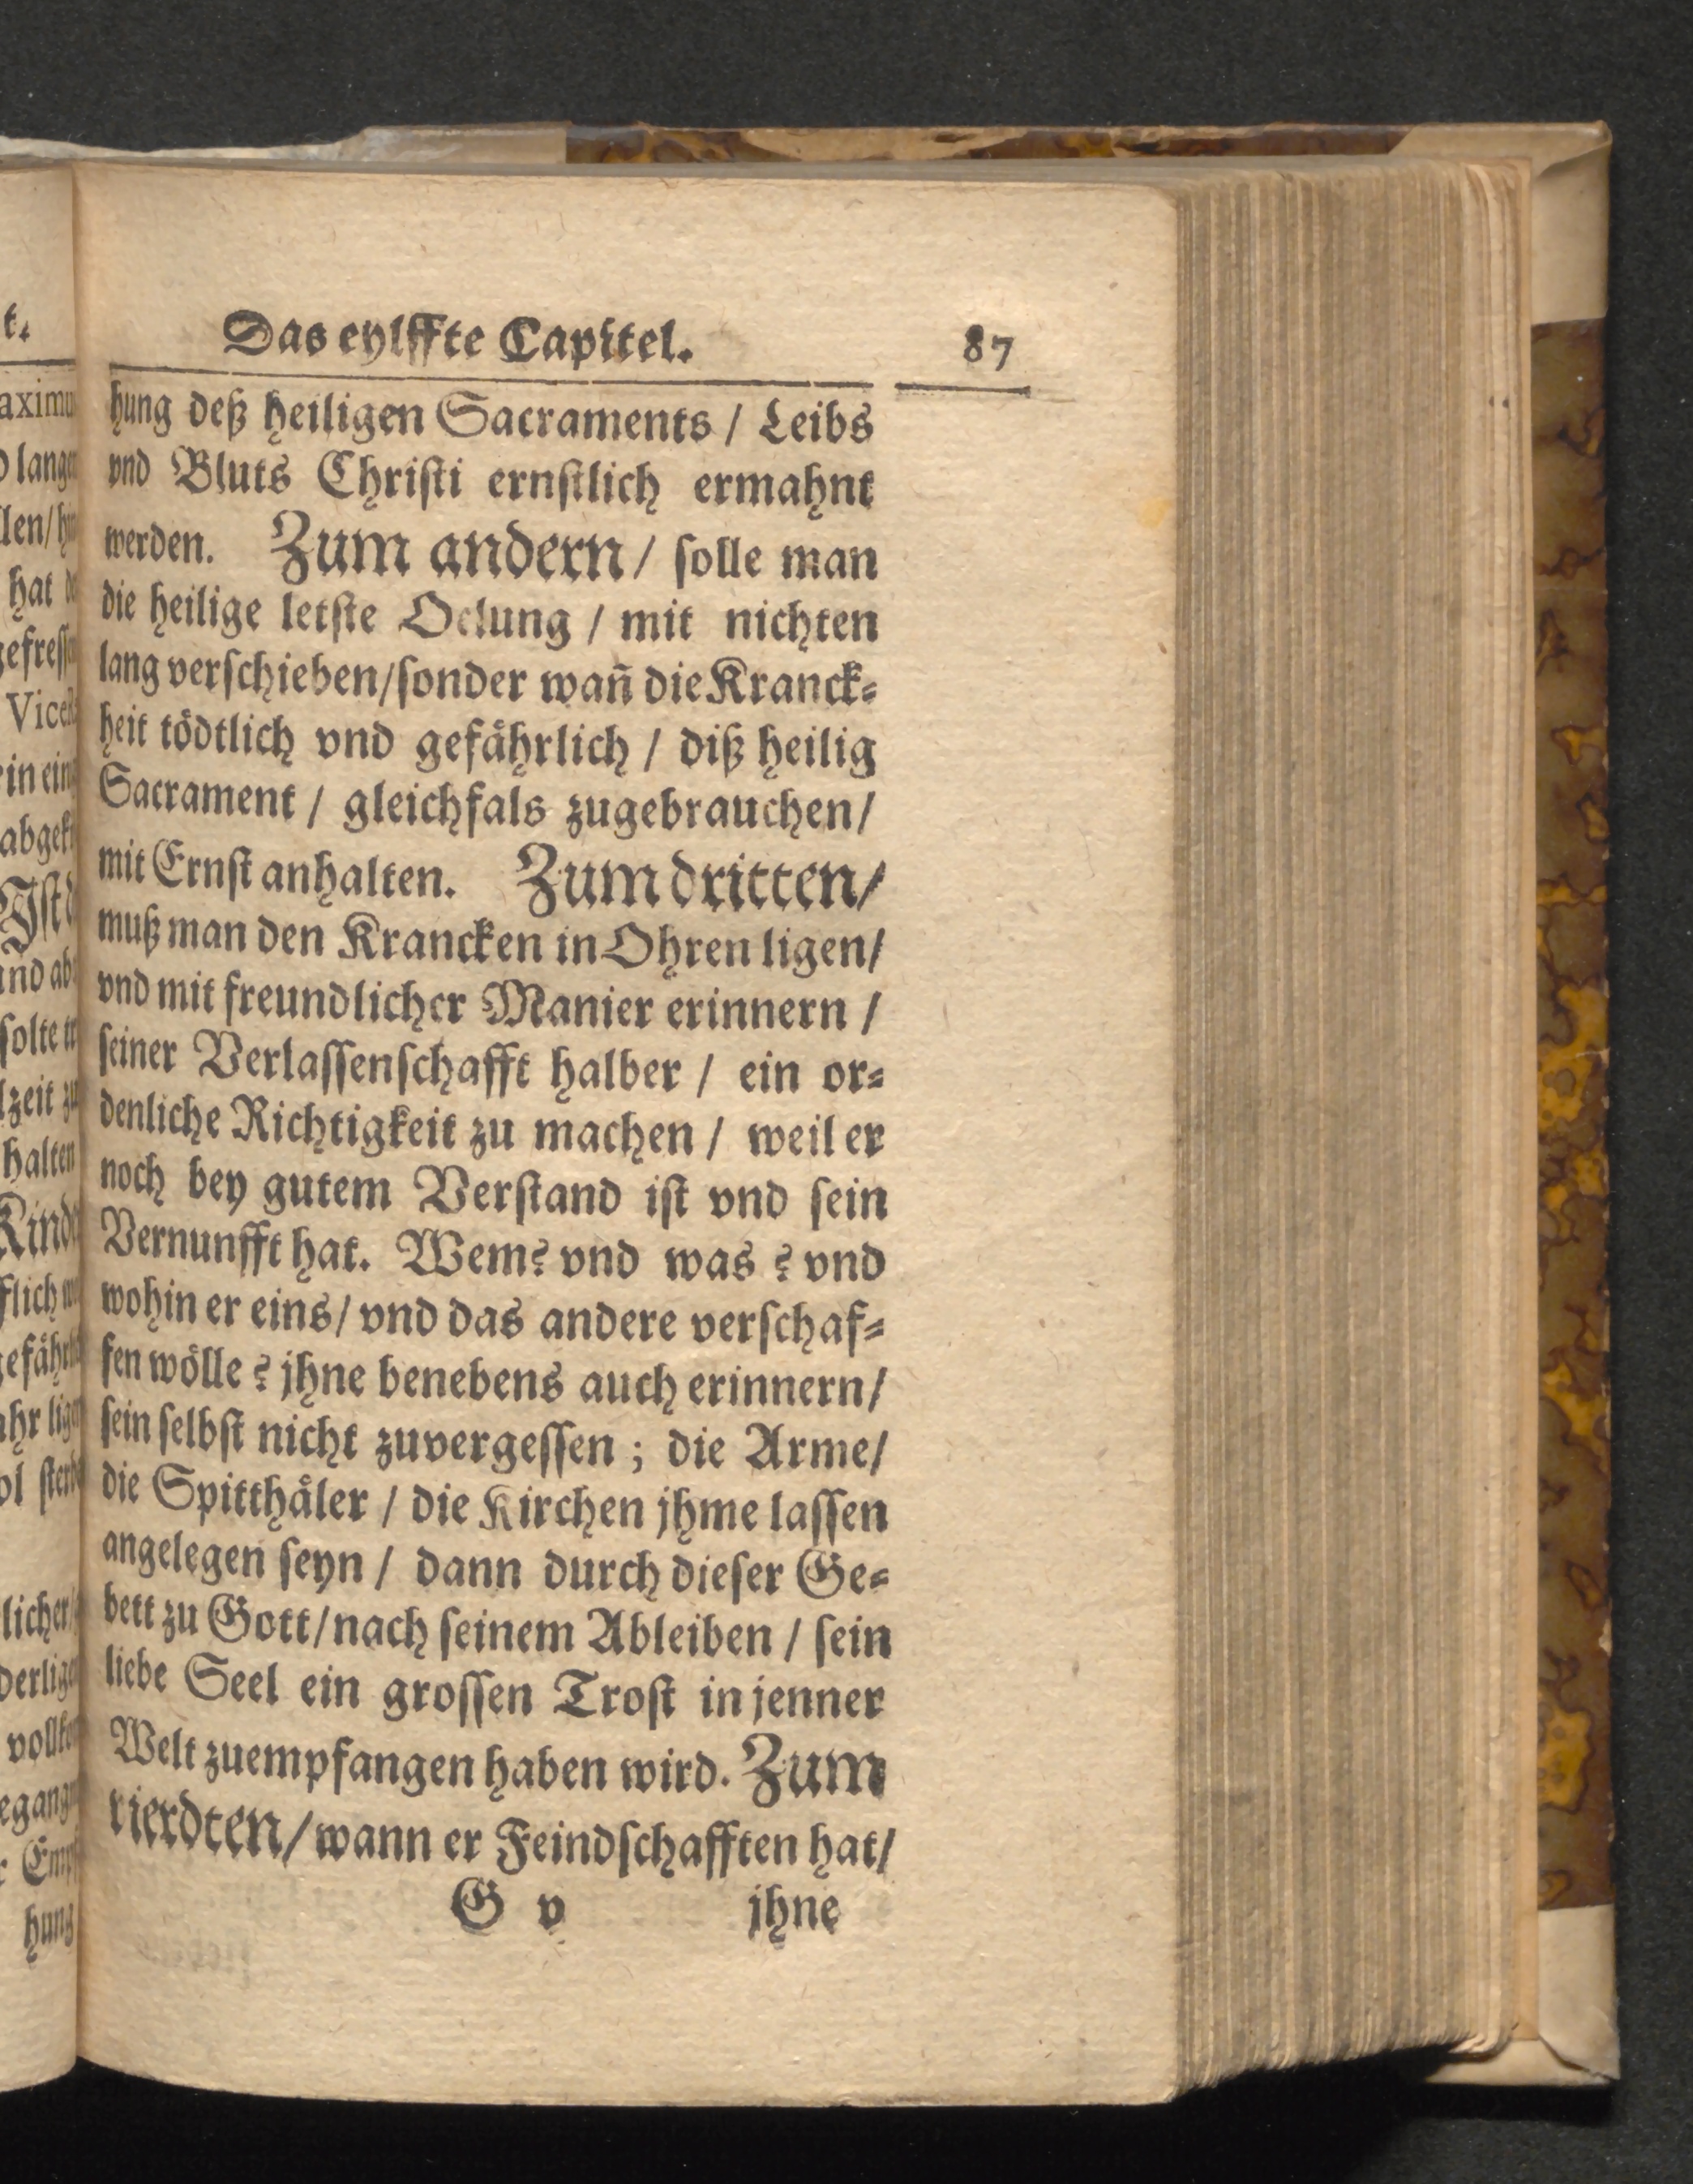 Das eylffte Capitel. 87
hung deß heiligen Sacraments / Leibs
vnd Bluts Chriſti ernſtlich ermahnt
werden. Zum andern / ſolle man
die heilige letſte Oelung / mit nichten
lang verſchieben/ſonder wañ die Kranck⸗
heit tödtlich vnd gefährlich / diß heilig
Sacrament / gleichfals zugebrauchen/
mit Ernſt anhalten. Zum dritten/
muß man den Krancken in Ohren ligen/
vnd mit freundlicher Manier erinnern /
ſeiner Verlaſſenſchafft halber / ein or⸗
denliche Richtigkeit zu machen / weil er
noch bey gutem Verſtand iſt vnd ſein
Vernunfft hat. Wem? vnd was ? vnd
wohin er eins/ vnd das andere verſchaf⸗
fen wölle ? jhne benebens auch erinnern/
ſein ſelbſt nicht zuvergeſſen ; die Arme/
die Spitthäler / die Kirchen jhme laſſen
angelegen ſeyn / dann durch dieſer Ge⸗
bett zu Gott/nach ſeinem Ableiben / ſein
liebe Seel ein groſſen Troſt in jenner
Welt zuempfangen haben wird. Zum
vierdten/ wann er Feindſchafften hat/
G v jhne